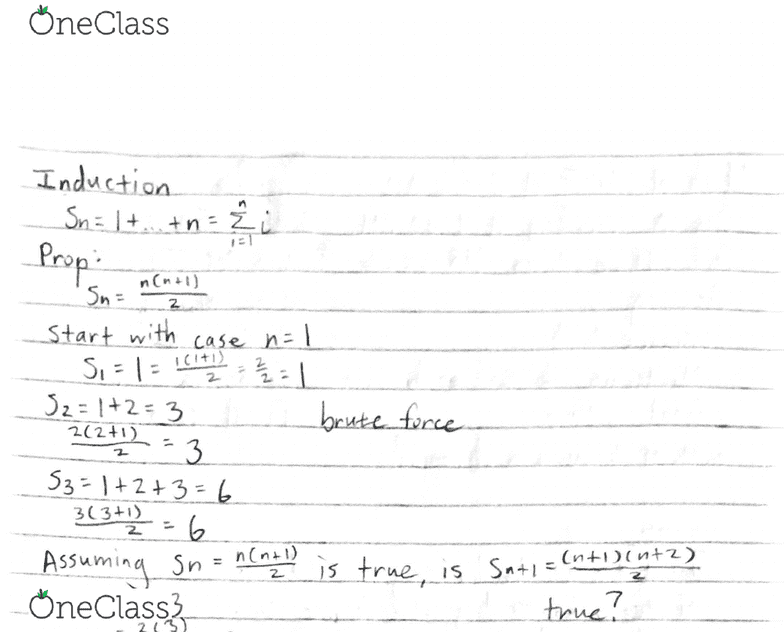 OneClass
Induction
Sn = 1+...+n = Σ_{i=1}^{n} i
Prop:
Sn = n(n+1)/2
Start with case n=1
S₁ = 1 = 1(1+1)/2 = 2/2 = 1
S₂ = 1+2 = 3 brute force
2(2+1)/2 = 3
S₃ = 1+2+3 = 6
3(3+1)/2 = 6
Assuming Sn = n(n+1)/2 is true, is Sn+1 = (n+1)(n+2)/2
true?
OneClass